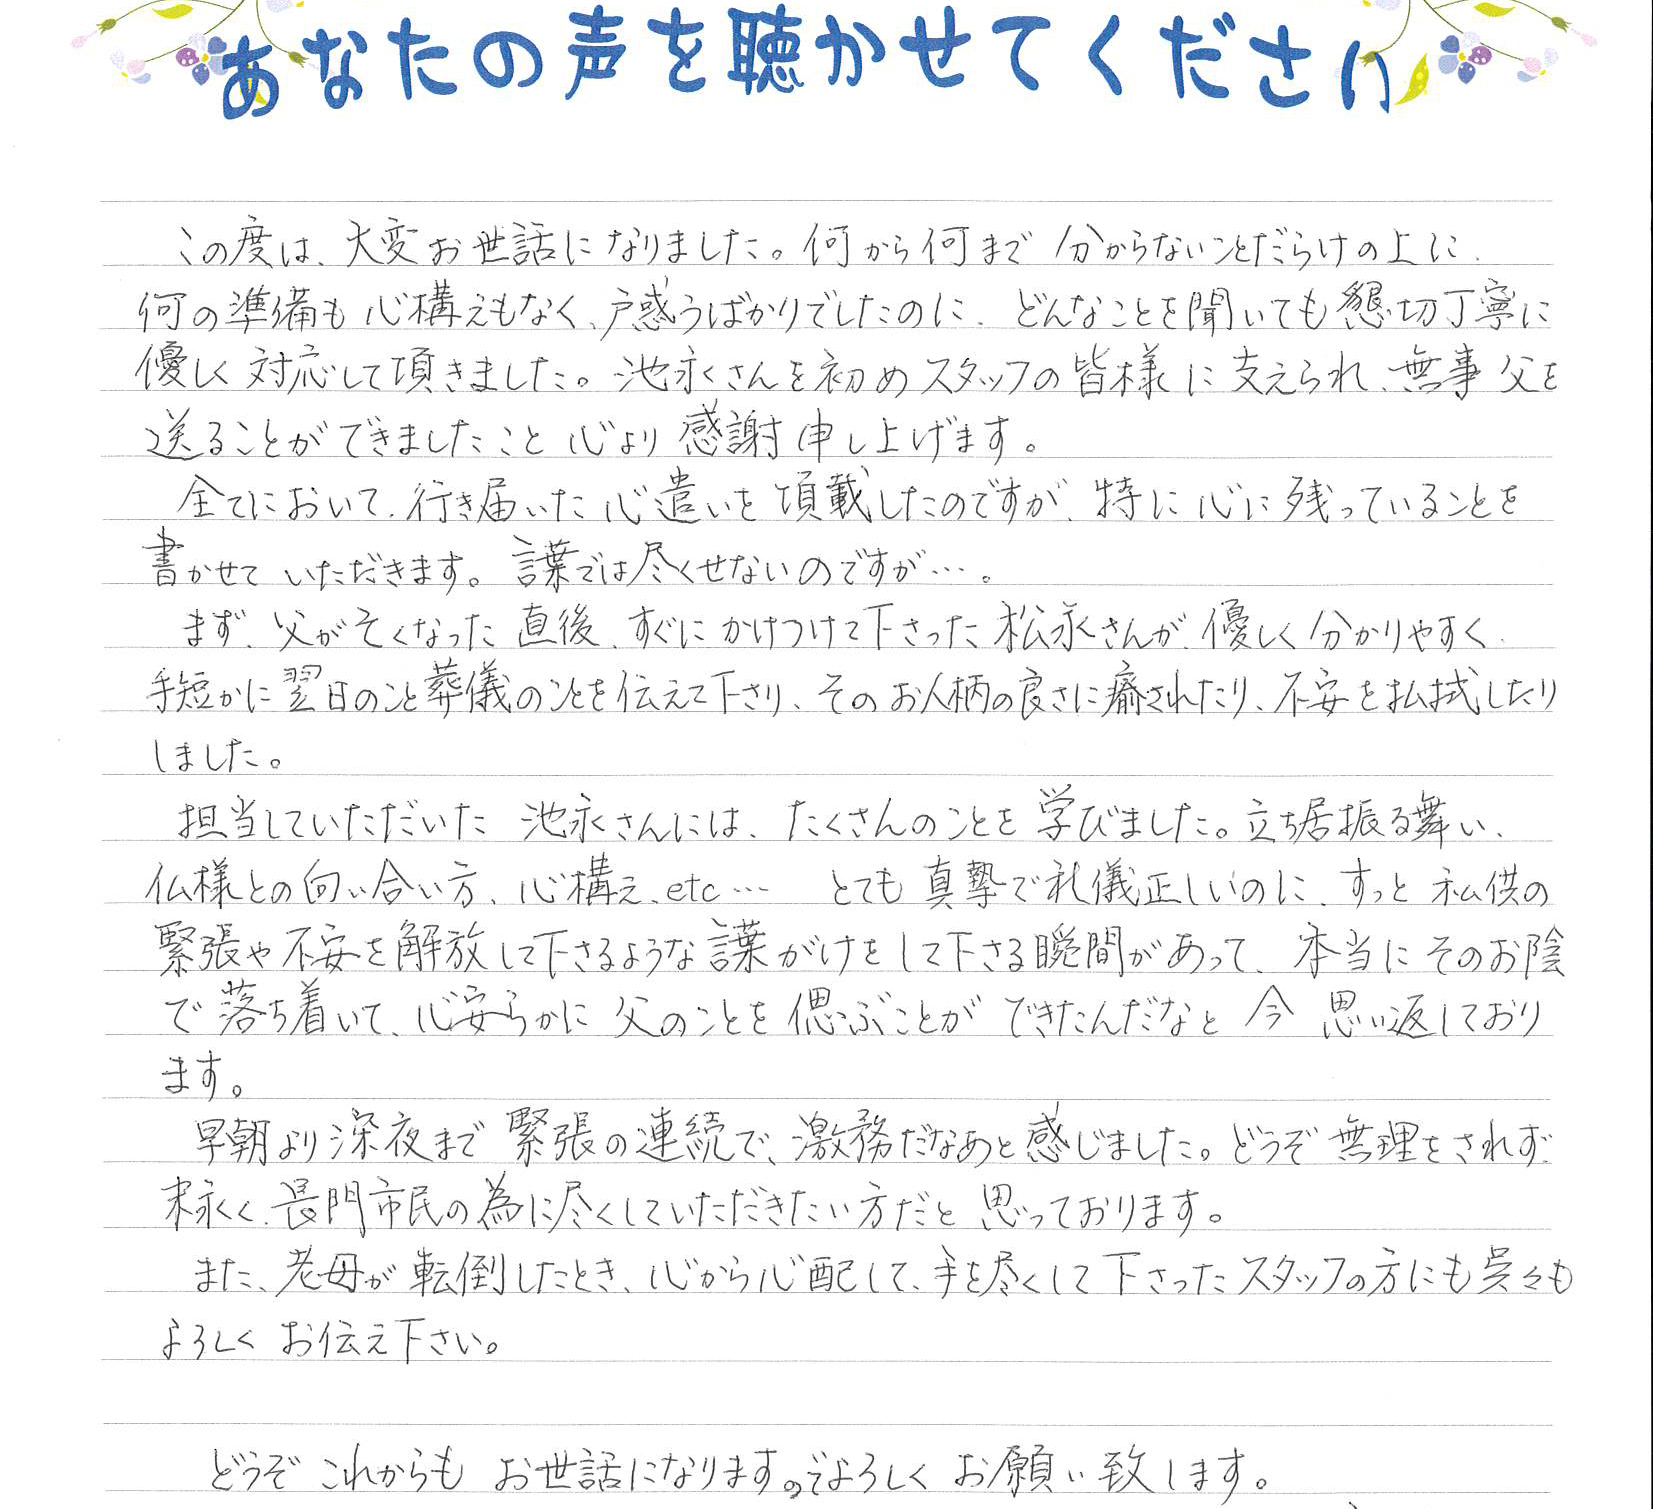 あなたの声を聴かせてください
この度は、大変お世話になりました。何から何まで分からないことだらけの上に、
何の準備も心構えもなく、戸惑うばかりでしたのに、どんなことを聞いても懇切丁寧に
優しく対応して頂きました。池永さんを初めスタッフの皆様に支えられ、無事父を
送ることができましたこと心より感謝申し上げます。
全てにおいて、行き届いた心遣いを頂戴したのですが、特に心に残っていることを
書かせていただきます。言葉では尽くせないのですが…。
まず、父がそくなった直後、すぐにかけつけて下さった松永さんが、優しく分かりやすく、
手短かに翌日のこと葬儀のことを伝えて下さり、そのお人柄の良さに癒されたり、不安を払拭したり
しました。
担当していただいた池永さんには、たくさんのことを学びました。立ち居振る舞い、
仏様との向い合い方、心構え、etc… とても真摯で礼儀正しいのに、すっと私供の
緊張や不安を解放して下さるような言葉がけをして下さる瞬間があって、本当にそのお陰
で落ち着いて、心安らかに父のことを偲ぶことができたんだなと今思い返しており
ます。
早朝より深夜まで緊張の連続で、激務だなあと感じました。どうぞ無理をされず
末永く、長門市民の為に尽くしていただきたい方だと思っております。
また、老母が転倒したとき、心から心配して、手を尽くして下さったスタッフの方にも呉々も
よろしくお伝え下さい。
どうぞこれからもお世話になりますのでよろしくお願い致します。